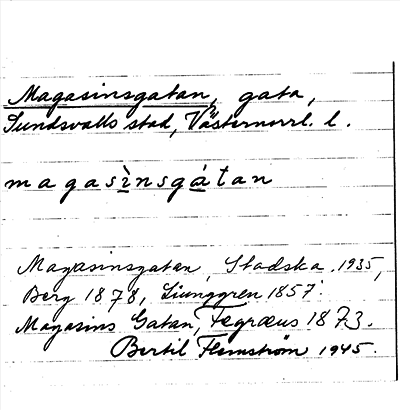 Magasinsgatan, gata,
Sundsvalls stad, Västernorrl. l.
magasìnsgátan
Magasinsgatan, Stadska. 1935,
Berg 1878, Ljunggren 1857.
Magasins Gatan, Fegræus 1873.
Bertil Flemström 1945.